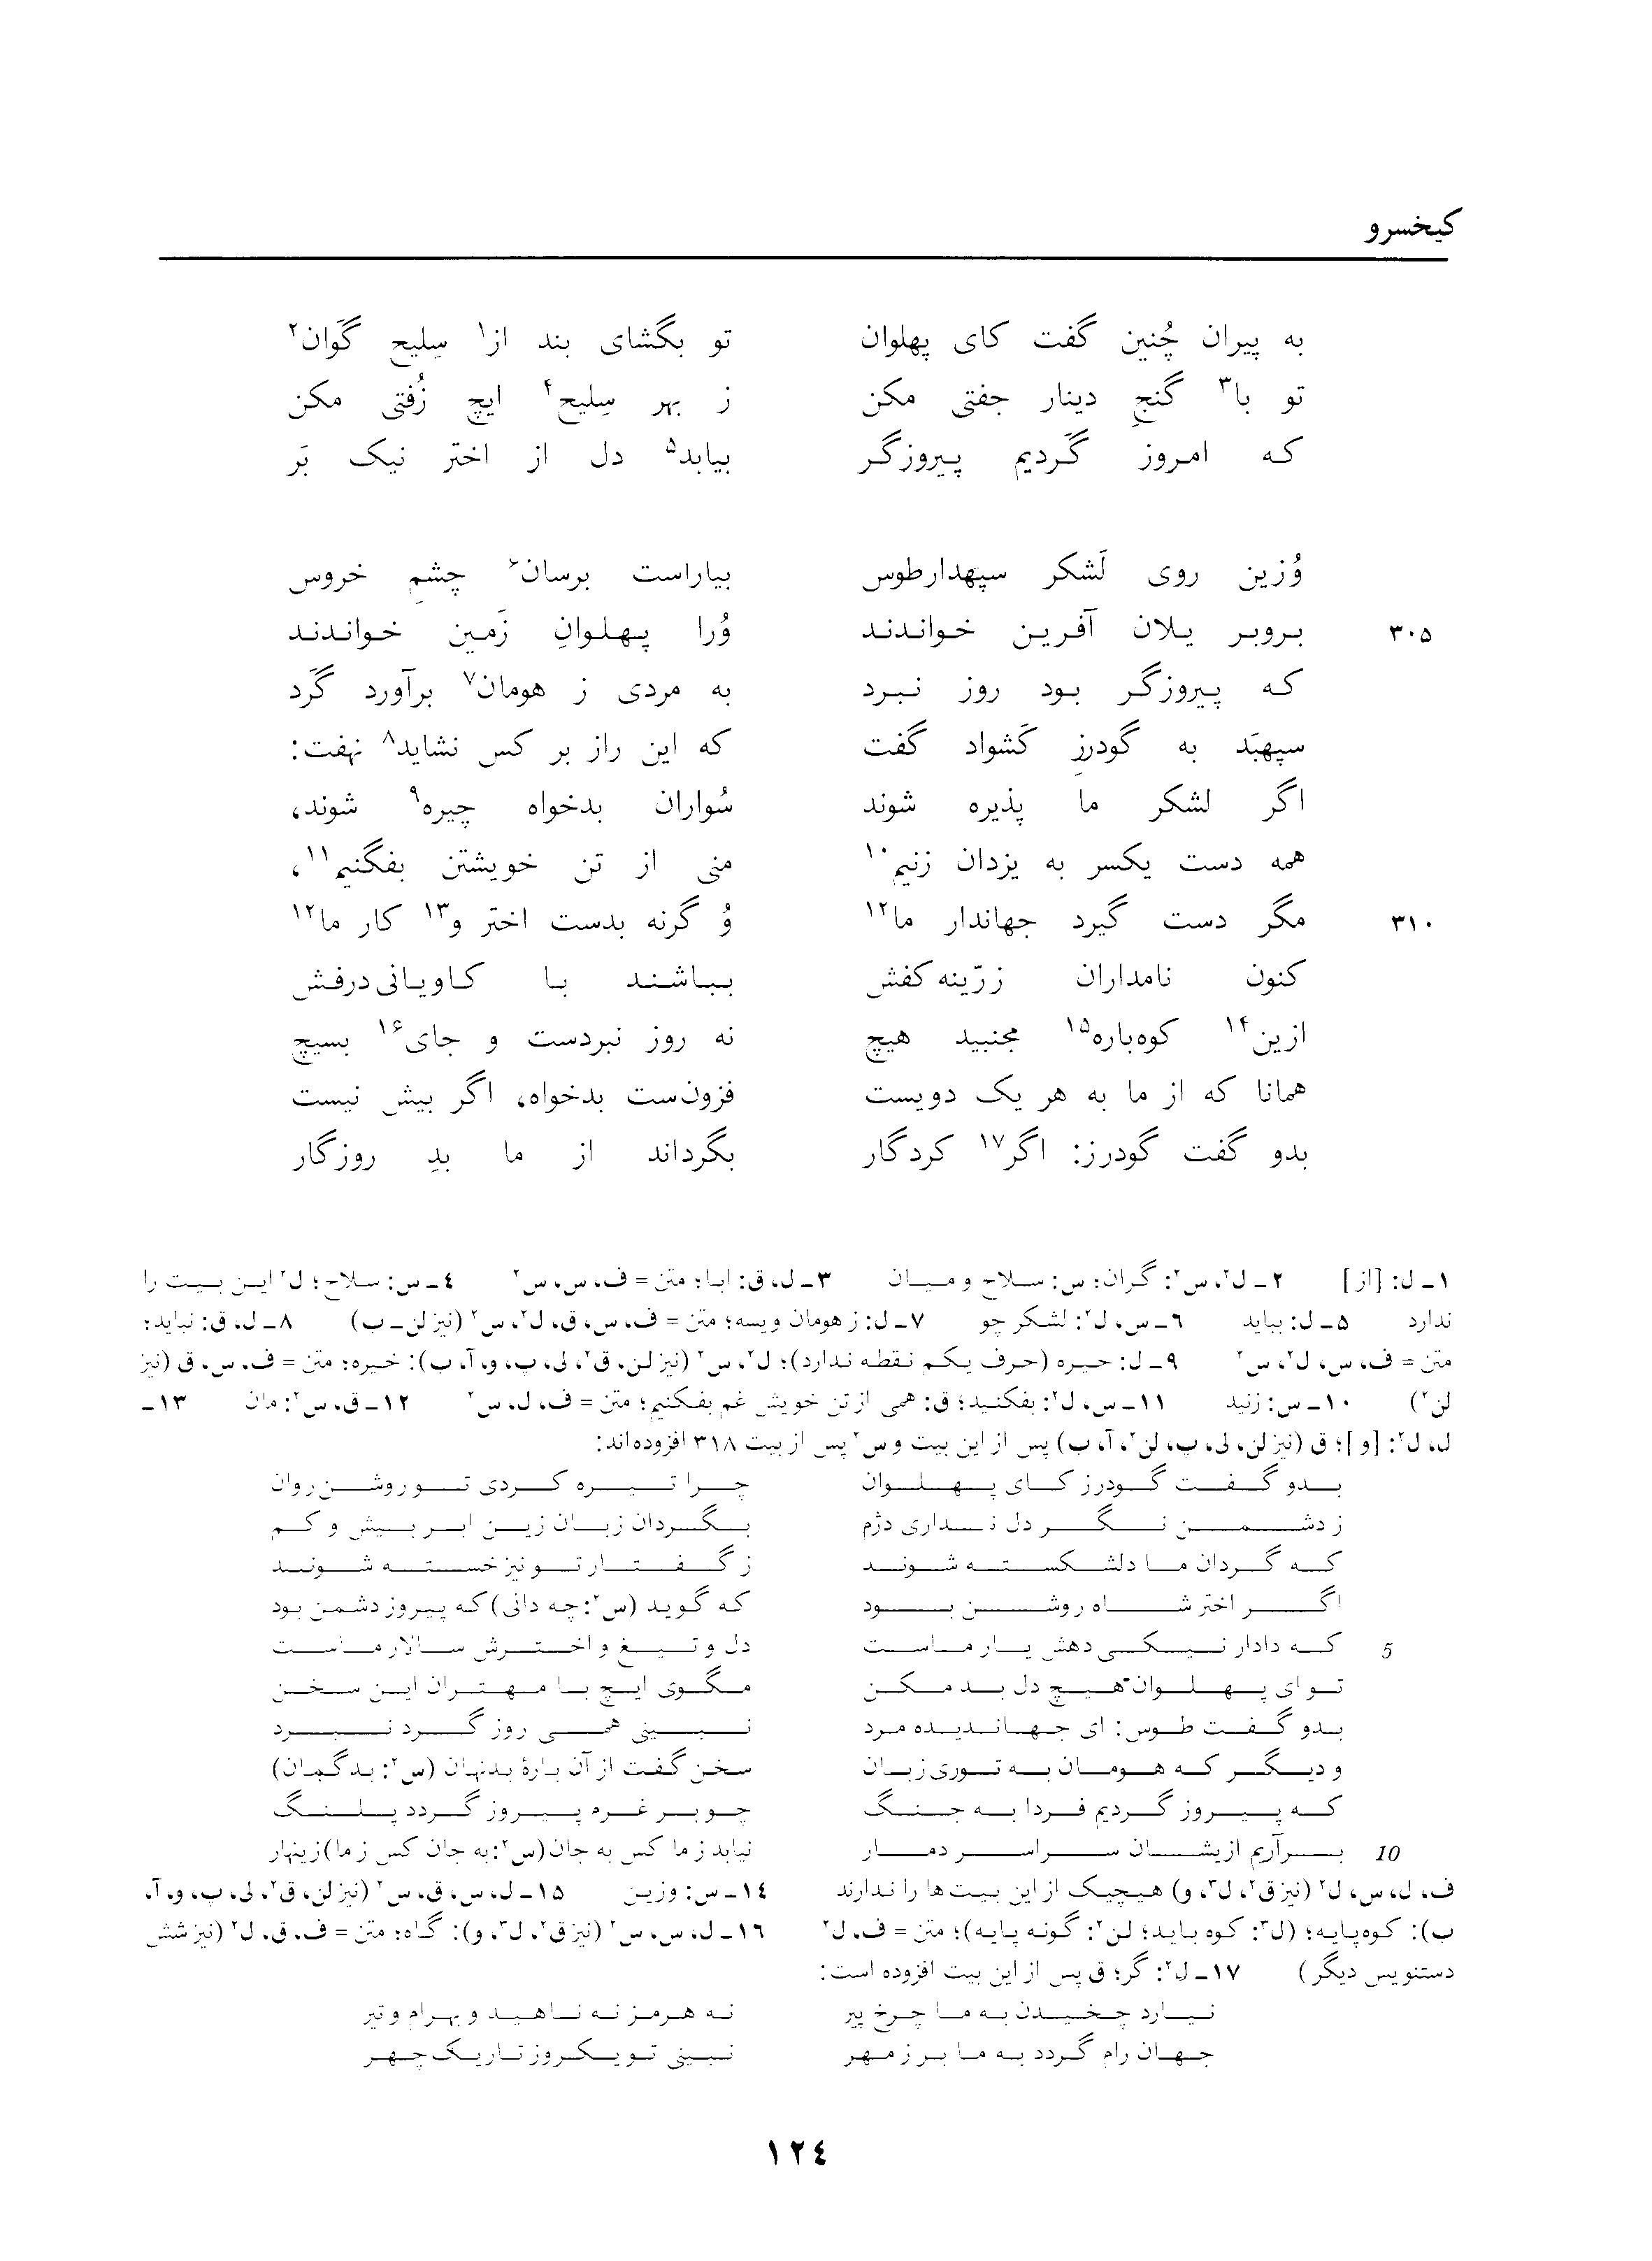 کیخسرو
به پیران چُنین گفت کای پهلوان تو بگشای بند از۱ سِلیح گَوان۲
تو با۳ گنجِ دینار جفتی مکن ز بهر سِلیح۴ ایچ زُفتی مکن
که امروز گَردیم پیروزگر بیابد۵ دل از اختر نیک بَر
وُزین روی لَشکر سپهدارطوس بیاراست برسان۶ چشمِ خروس
۳۰۵ بروبر یلان آفرین خواندند وُرا پهلوانِ زَمین خواندند
که پیروزگر بود روز نبرد به مردی ز هومان۷ برآورد گَرد
سپهبَد به گودرزِ کَشواد گفت که این راز بر کس نشاید۸ نهفت:
اگر لشکر ما پذیره شوند سُواران بدخواه چیره۹ شوند،
همه دست یکسر به یزدان زنیم۱۰ منی از تن خویشتن بفگنیم۱۱،
۳۱۰ مگر دست گیرد جهاندار ما۱۲ وُ گرنه بدست اختر و۱۳ کار ما۱۲
کنون نامداران زرّینه کفش بباشند با کاویانی درفش
ازین۱۴ کوه‌باره۱۵ مجنبید هیچ نه روز نبردست و جای۱۶ بسیچ
همانا که از ما به هر یک دویست فزون‌ست بدخواه، اگر بیش نیست
بدو گفت گودرز: اگر۱۷ کردگار بگرداند از ما بدِ روزگار
۱ـ ل: [از] ۲ـ ل۲، س۲: گران؛ س: سلاح و میان ۳ـ ل، ق: ابا؛ متن = ف، س، س۲ ۴ـ س: سلاح؛ ل۲ این بیت را
ندارد ۵ـ ل: بیاید ۶ـ س، ل۲: لشکر چو ۷ـ ل: ز هومان ویسه؛ متن = ف، س، ق، ل۲، س۲ (نیز لن‌ـ ب) ۸ـ ل، ق: نباید؛
متن = ف، س، ل۲، س۲ ۹ـ ل: حیره (حرف یکم نقطه ندارد)؛ ل۲، س۲ (نیز لن، ق۲، لی، پ، و، آ، ب): خیره؛ متن = ف، س، ق (نیز
لن۲) ۱۰ـ س: زنید ۱۱ـ س، ل۲: بفکنید؛ ق: همی از تن خویش غم بفکنیم؛ متن = ف، ل، س۲ ۱۲ـ ق، س۲: مان ۱۳ـ
ل، ل۲: [و]؛ ق (نیز لن، لی، پ، لن۲، آ، ب) پس از این بیت و س۲ پس از بیت ۳۱۸ افزوده‌اند:
بدو گفت گودرز کای پهلوان چرا تیره کردی تو روشن‌روان
ز دشمن نگر دل نداری دژم بگردان زبان زین ابر بیش و کم
که گردان ما دلشکسته شوند ز گفتار تو نیز خسته شوند
اگر اختر شاه روشن بود که گوید (س۲: چه دانی) که پیروز دشمن بود
5 که دادار نیکی دهش یار ماست دل و تیغ و اخترش سالار ماست
تو ای پهلوان هیچ دل بد مکن مگوی ایچ با مهتران این سخن
بدو گفت طوس: ای جهاندیده مرد نبینی همی روز گرد نبرد
و دیگر که هومان به توری زبان سخن گفت از آن بارهٔ بدنهان (س۲: بدگمان)
که پیروز گردیم فردا به جنگ چو بر غرم پیروز گردد پلنگ
10 برآریم ازیشان سراسر دمار نیابد ز ما کس به جان (س۲: به جان کس ز ما) زینهار
ف، ل، س، ل۲ (نیز ق۲، ل۳، و) هیچیک از این بیت‌ها را ندارند ۱۴ـ س: وزین ۱۵ـ ل، س، ق، س۲ (نیز لن، ق۲، لی، پ، و، آ،
ب): کوه‌پایه؛ (ل۳: کوه باید؛ لن۲: گونه پایه)؛ متن = ف، ل۲ ۱۶ـ ل، س، س۲ (نیز ق۲، ل۳، و): گاه؛ متن = ف، ق، ل۲ (نیز شش
دستنویس دیگر) ۱۷ـ ل۲: گر؛ ق پس از این بیت افزوده است:
نیارد چخیدن به ما چرخ پیر نه هرمز نه ناهید و بهرام و تیر
جهان رام گردد به ما بر ز مهر نبینی تو یکروز تاریک چهر
۱۲۴